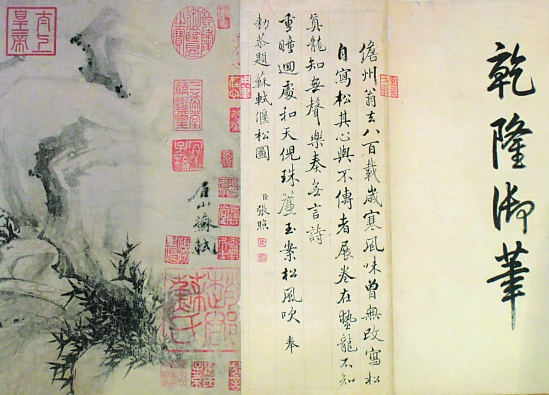 乾隆御筆
儋州翁去八百載歲寒風味曾無改寫松
自寫松其心與不傳者展卷在蟄龍不知
真龍知無聲樂奏無言詩
重瞳迴處和天倪珠簾玉案松風吹 奉
勅恭題蘇軾偃松圖
臣張照
眉山蘇軾
趙郡蘇氏
太上皇帝